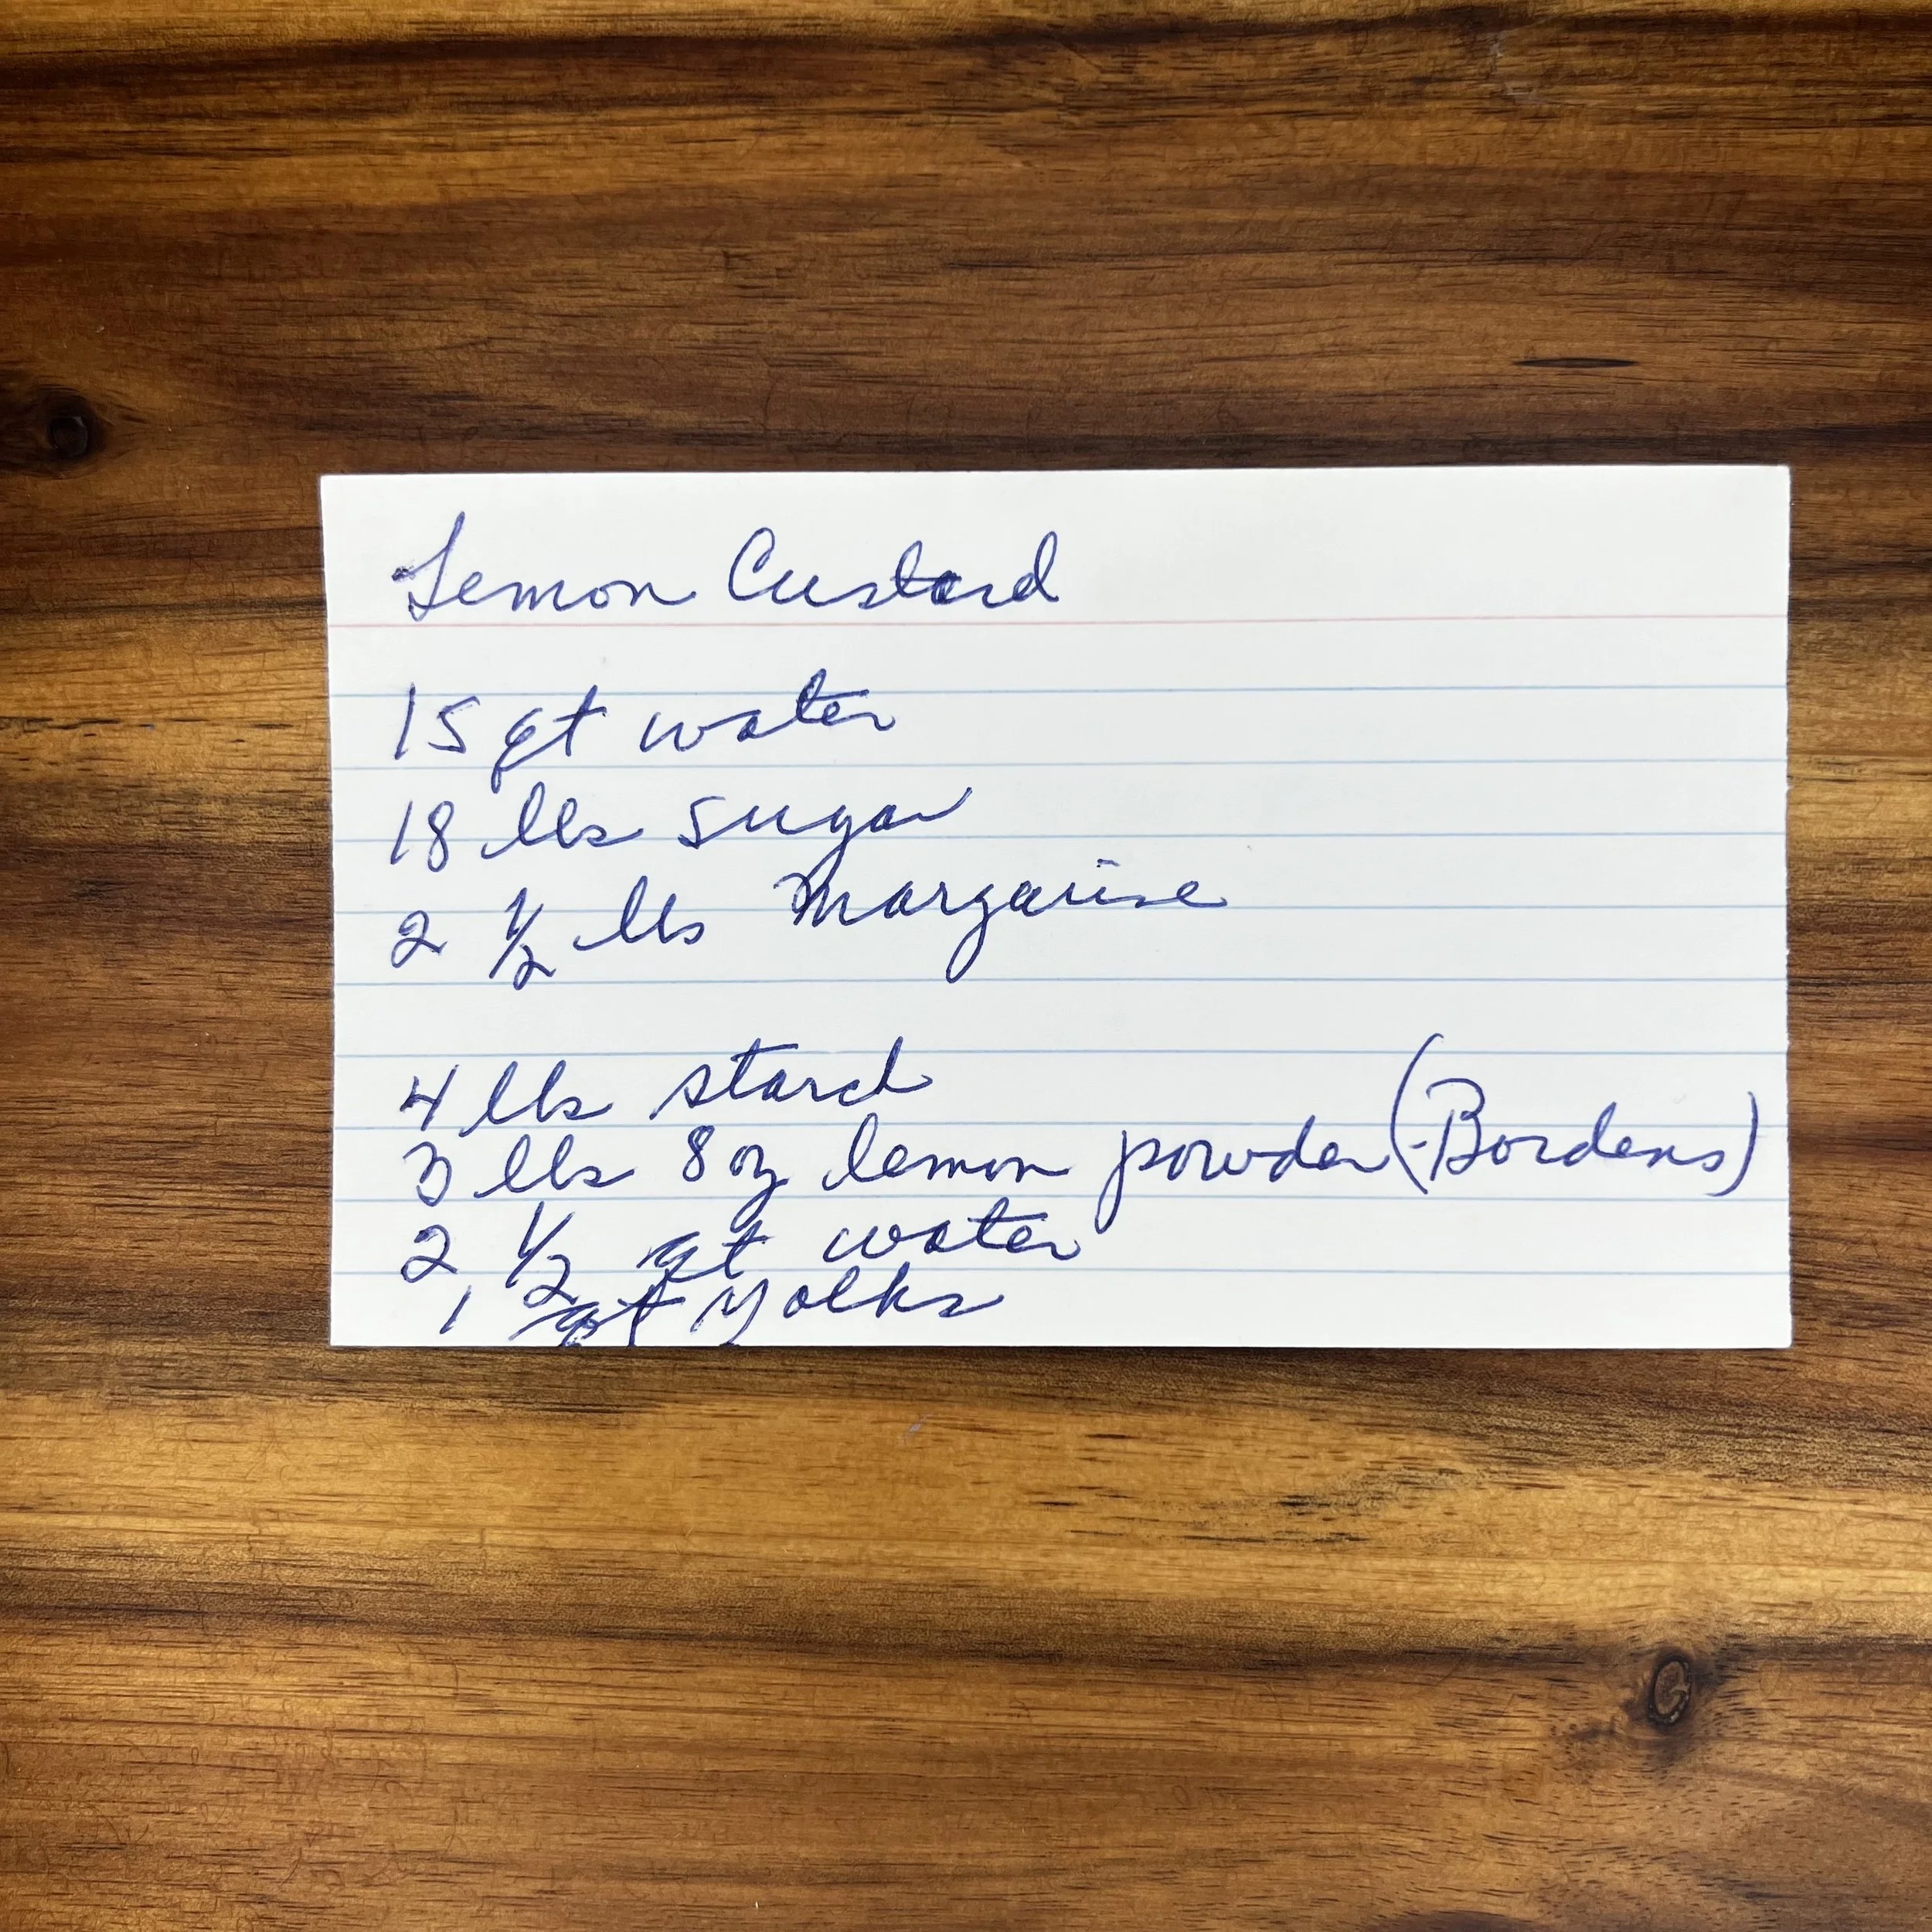 Lemon Custard
15 qt water
18 lbs sugar
2 1/2 lbs Margarine
4 lbs starch
3 lbs 8 oz lemon powder (Bordens)
2 1/2 qt water
1 qt yolks